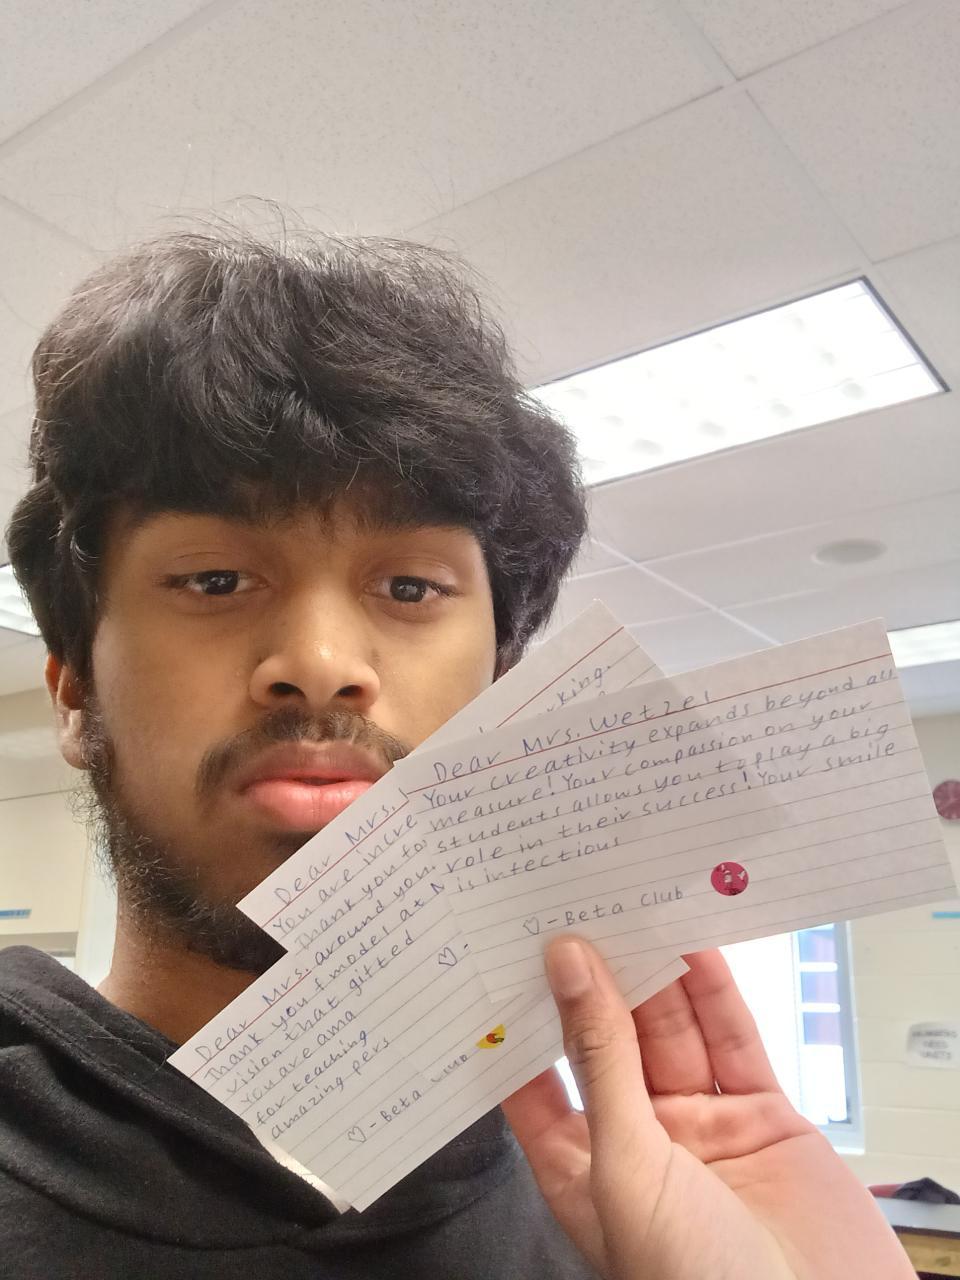 Dear Mrs. Wetzel
Your creativity expands beyond all
measure! Your compassion on your
students allows you to play a big
role in their success! Your smile
is infectious
♡-Beta Club
king.
Dear Mrs.
You are incre
Thank you fo
around you.
model at N
♡-
Dear Mrs.
Thank you f
vision that gifted
You are ama
for teaching
amazing pers
♡-Beta Club
NUMBERS
NEED
UNITS